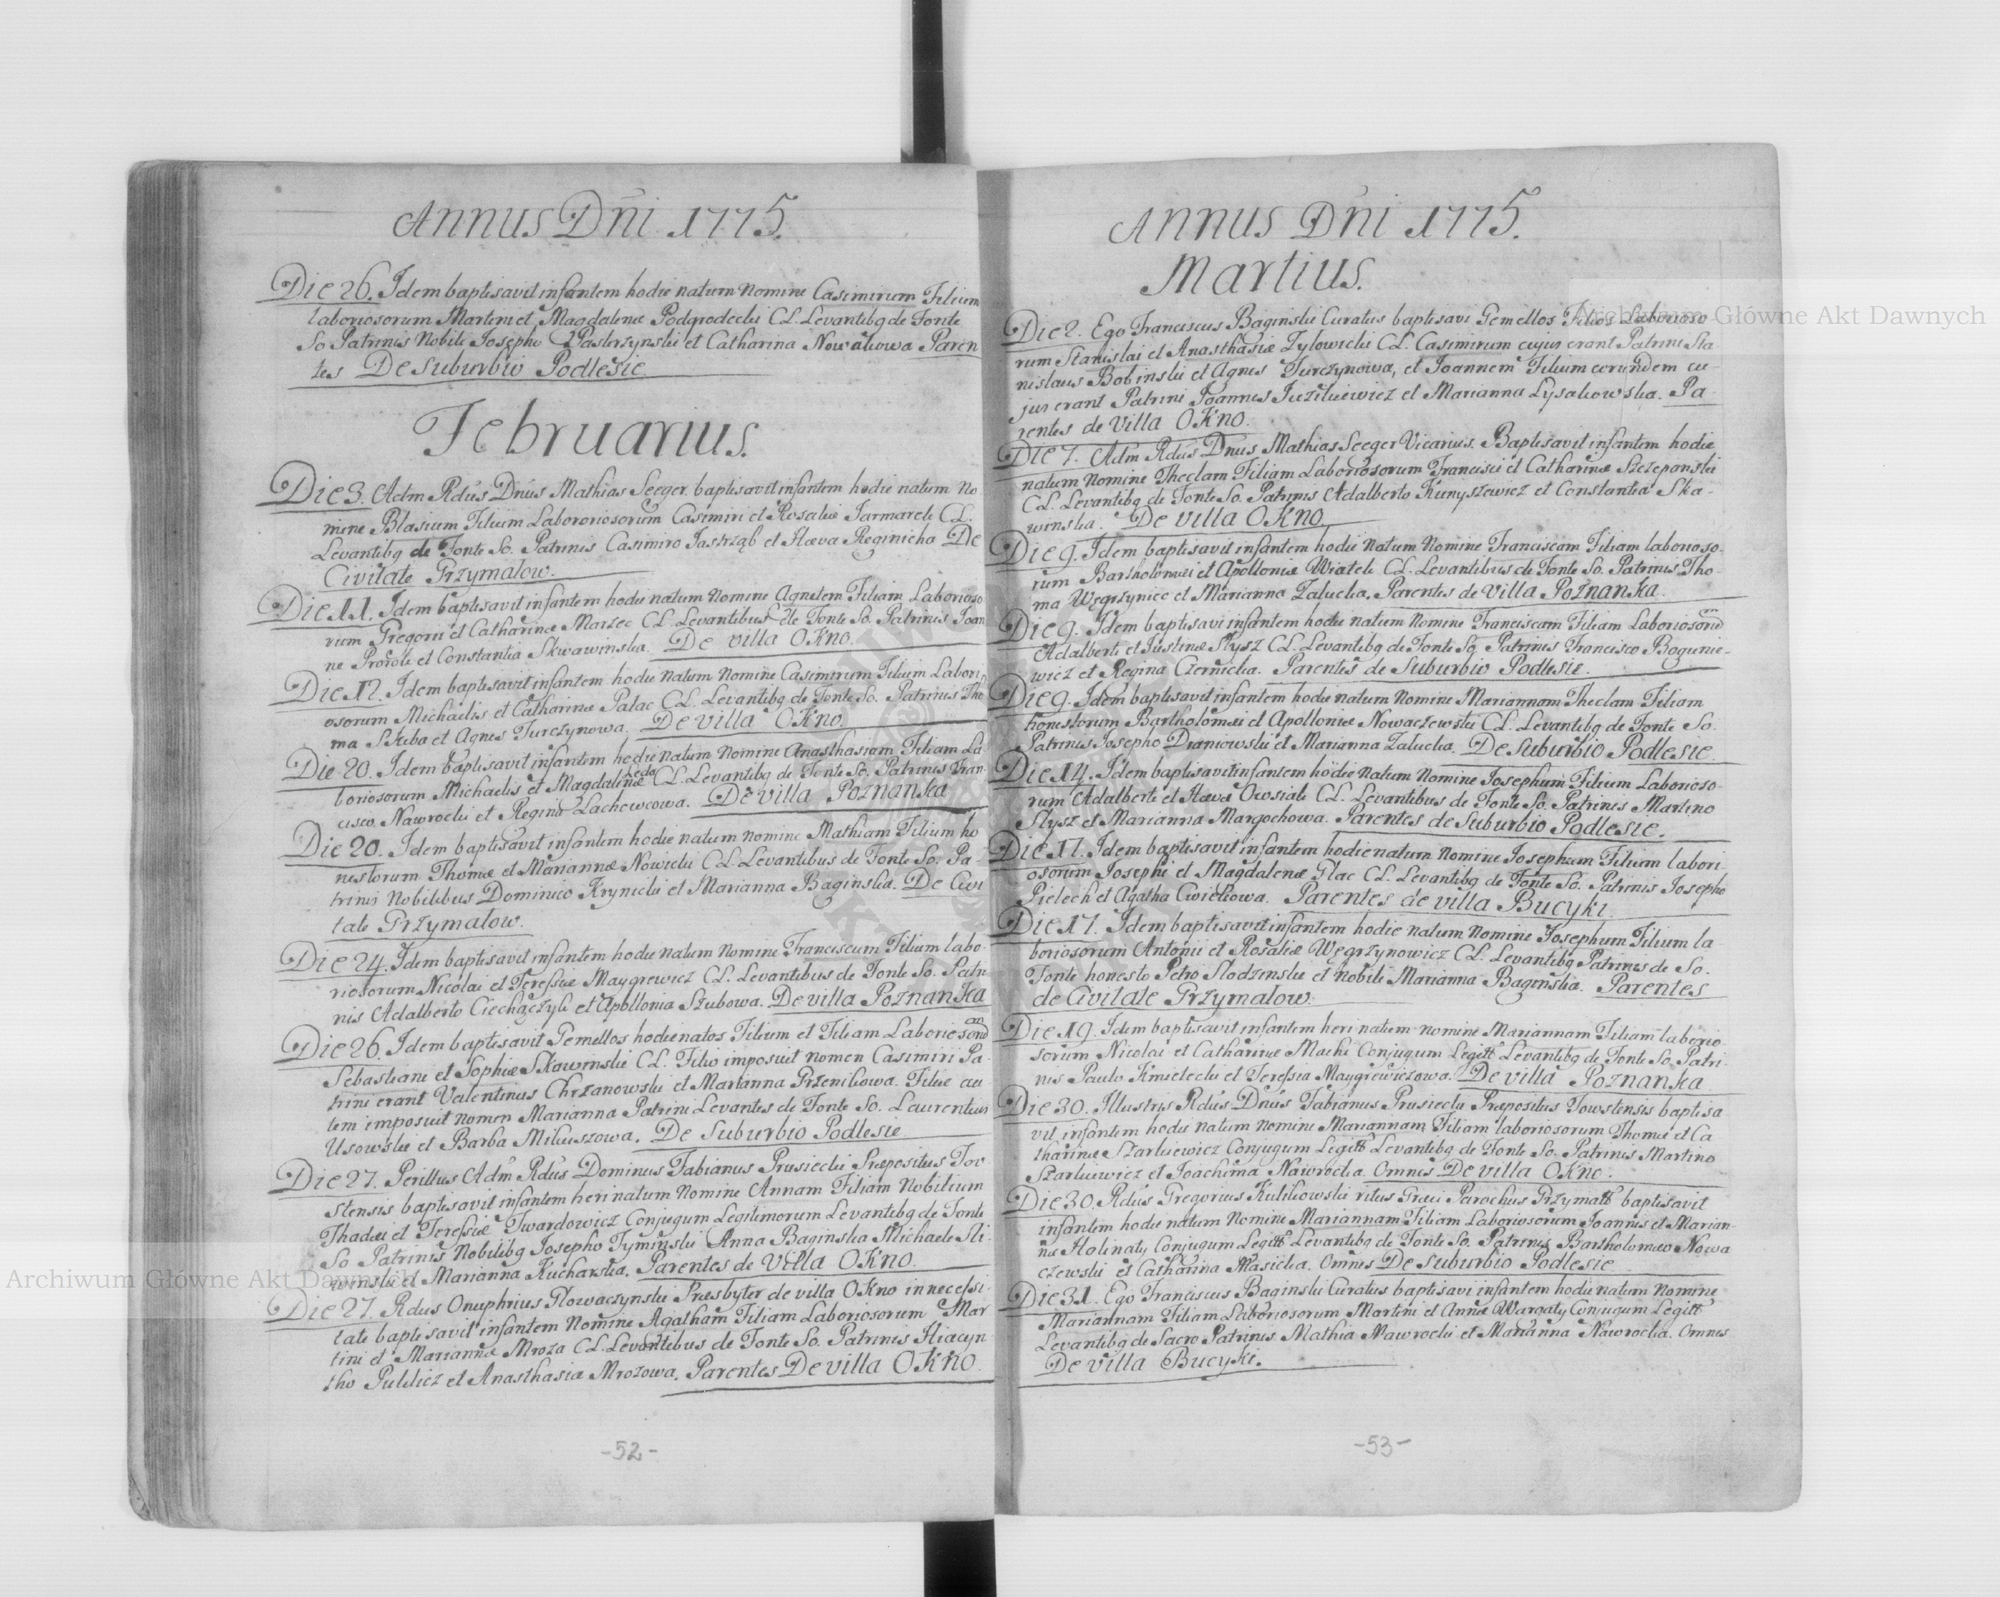 Annus Dñi 1775.
Die 26. Idem baptisavit infantem hodie natum Nomine Casimirum Filium
laboriosorum Martini et Magdalenæ Podgrodecki CL. Levantibq de Fonte
So Patrinis Nobili Josepho Pastrzynski et Catharina Nowakowa Paren
tes De Suburbio Podlesie
Februarius.
Die 3. Adm Rdus Dnus Mathias Seeger baptisavit infantem hodie natum No
mine Blasium Filium Labororiosorum Casimiri et Rosaliæ Jarmarek CL.
Levantibq de Fonte So. Patrinis Casimiro Jastrząb et Hæva Reginicha De
Civitate Grzymałow.
Die 11. Idem baptisavit infantem hodie natum Nomine Agnetem Filiam Laborioso
rum Gregorii et Catharinæ Marzec CL. Levantibus de Fonte So. Patrinis Joan
ne Prorok et Constantia Skwawinska. De villa OKno.
Die 12. Idem baptisavit infantem hodie natum Nomine Casimirum Filium Labori
osorum Michaelis et Catharinæ Palac CL. Levantibq de Fonte So. Patrinis Tho
ma Skiba et Agnes Turczynowa. De villa OKno
Die 20. Idem baptisavit infantem hodie natum Nomine Anasthasiam Filiam La
boriosorum Michaelis et Magdalinæ Leda CL. Levantibq de Fonte So. Patrinis Fran
cisco Nawrocki et Regina Lachowcowa. De villa Poznanka
Die 20. Idem baptisavit infantem hodie natum nomine Mathiam Filium ho
nestorum Thomæ et Mariannæ Nowicki CL Levantibus de Fonte So. Pa-
trinis Nobilibus Dominico Krynicki et Marianna Baginska. De Civi
tate Grzymałow.
Die 24. Idem baptisavit infantem hodie natum Nomine Franciscum Filium labo-
riosorum Nicolai et Teressiæ Maygrewicz CL. Levantibus de Fonte So. Patri
nis Adalberto Ciechączyk et Apollonia Szubowa. De villa Poznanka
Die 26. Idem baptisavit Gemellos hodie natos Filium et Filiam Laboriosorū
Sebastiani et Sophiæ Skawinski CL. Filio imposuit nomen Casimiri Pa
trini erant Valentinus Chrzanowski et Marianna Przenikowa. Filiæ au
tem imposuit nomen Marianna Patrini Levantes de Fonte So. Laurentius
Usowski et Barba Mikuszowa. De Suburbio Podlesie
Die 27. Perillus Adm Rdus Dominus Fabianus Prusiecki Præpositus Tow
stensis baptisavit infantem heri natum Nomine Annam Filiam Nobilium
Thadæi et Teressiæ Twardowicz Conjugum Legitimorum Levantibq de Fonte
So Patrinis Nobilibq Josepho Tyminski Anna Baginska Michaele Sli
winski et Marianna Kucharska. Parentes de villa OKno.
Die 27. Rdus Onuphrius Głowaczynski Præsbyter de villa OKno in necessi
tate baptisavit infantem Nomine Agatham Filiam Laboriosorum Mar
tini et Mariannæ Mroza CL. Levantibus de Fonte So. Patrinis Hiacyn
tho Puklicz et Anasthasia Mrozowa. Parentes De villa OKno.
-52-
Annus Dñi 1775.
Martius.
Die 2. Ego Franciscus Baginski Curatus baptisavi Gemellos Filios Laborioso
rum Stanislai et Anasthasiæ Zylowicki CL. Casimirum cujus erant Patrini Sta
nislaus Bobinski et Agnes Turczynowa, et Joannem Filium eorundem cu-
jus erant Patrini Joannes Juzikiewicz et Marianna Lysakowska. Pa
rentes de villa OKno.
Die 7. Adm Rdus Dnus Mathias Seeger Vicarius. Baptisavit infantem hodie
natum Nomine Theclam Filiam Laboriosorum Francisci et Catharinæ Szczepanski
CL. Levantibq de Fonte So. Patrinis Adalberto Kunyszewicz et Constantia Ska-
winska. De villa OKno
Die 9. Idem baptisavit infantem hodie natum Nomine Franciscam Filiam laborioso-
rum Bartholomæi et Apolloniæ Wiatek CL. Levantibus de Fonte So. Patrinis Tho-
ma Węgrzyniec et Marianna Zalucka. Parentes de villa Poznanka.
Die 9. Idem baptisavi infantem hodie natum Nomine Franciscam Filiam Laboriosorū
Adalberti et Justinæ Słysz CL. Levantibq de Fonte So. Patrinis Francisco Bogunie-
wicz et Regina Czernicka. Parentes de Suburbio Podlesie.
Die 9. Idem baptisavit infantem hodie natum Nomine Mariannam Theclam Filiam
honestorum Bartholomæi et Apolloniæ Nowaczewski CL. Levantibq de Fonte So.
Patrinis Josepho Draniowski et Marianna Zalucka. De Suburbio Podlesie.
Die 14. Idem baptisavit infantem hodie natum Nomine Josephum Filium Laborioso-
rum Adalberti et Hævæ Owsiak CL. Levantibus de Fonte So. Patrinis Martino
Słysz et Marianna Margochowa. Parentes de Suburbio Podlesie.
Die 17. Idem baptisavit infantem hodie natum Nomine Josephum Filium labori-
osorum Josephi et Magdalenæ Głac CL. Levantibq de Fonte So. Patrinis Josepho
Pielech et Agatha Cwiekowa. Parentes de villa Bucyki.
Die 17. Idem baptisavit infantem hodie natum Nomine Josephum Filium la
boriosorum Antonii et Rosaliæ Węgrzynowicz CL. Levantibq Patrinis de So.
Fonte honesto Petro Słodzinski et nobili Marianna Baginska. Parentes
de Civitate Grzymałow.
Die 19. Idem baptisavit infantem heri natum nomine Mariannam Filiam laborio
sorum Nicolai et Catharinæ Machi Conjugum Legitt Levantibq de Fonte So. Patri-
nis Paulo Kmietecki et Teressia Maygrewiczowa. De villa Poznanka
Die 30. Illustris Rdus Dnus Fabianus Prusiecki Præpositus Towstensis baptisa
vit infantem hodie natum nomine Mariannam Filiam laboriosorum Thomæ et Ca
tharinæ Szarkiewicz Conjugum Legitt Levantibq de Fonte So. Patrinis Martino
Szarkiewicz et Joachima Nawrocka. Omnes De villa OKno.
Die 30. Rdus Gregorius Kulikowski ritus Græci Parochus Grzymałł baptisavit
infantem hodie natum Nomine Mariannam Filiam Laboriosorum Joannis et Marian-
næ Holinaty Conjugum Legitt Levantibq de Fonte So. Patrinis Bartholomæo Nowa
czewski et Catharina Masicka. Omnes De Suburbio Podlesie
Die 31. Ego Franciscus Baginski Curatus baptisavi infantem hodie natum Nomine
Mariannam Filiam Laboriosorum Martini et Annæ Wargaty Conjugum Legitt
Levantibq de Sacro Patrinis Mathia Nawrocki et Marianna Nawrocka. Omnes
De villa Bucyki.
-53-
Archiwum Główne Akt Dawnych
Archiwum Główne Akt Dawnych